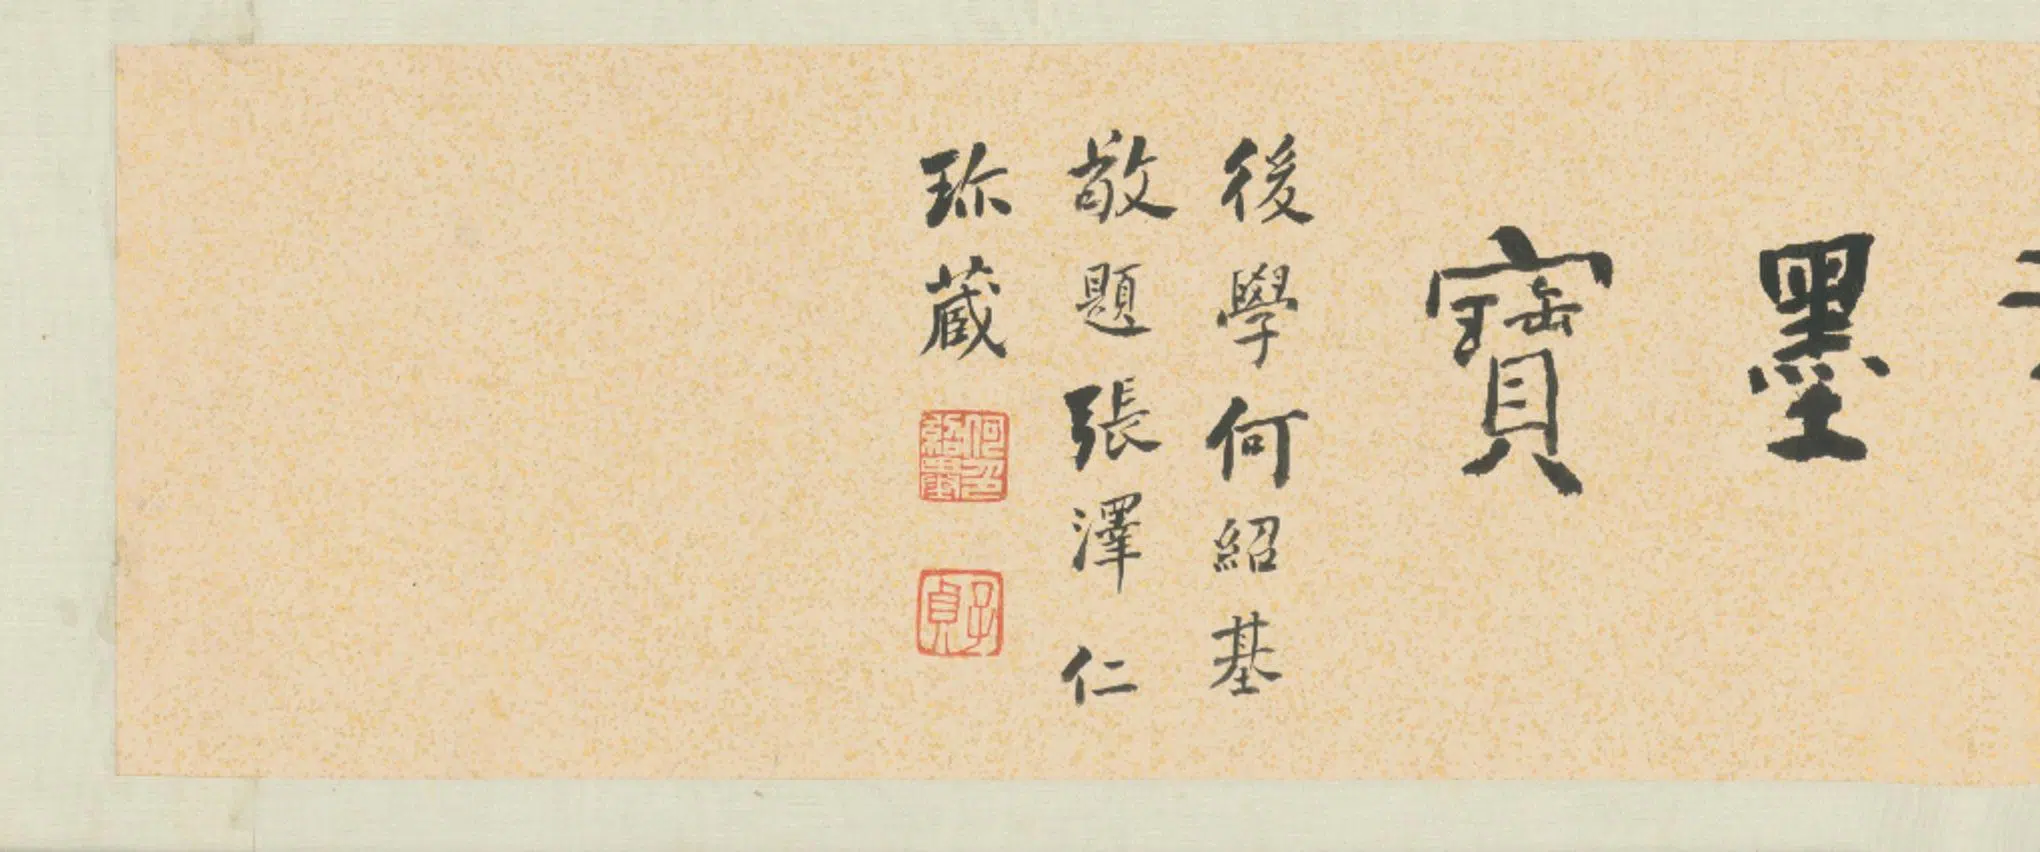 墨寶
後學何紹基
敬題張澤仁
珎蔵
何紹基印
子貞